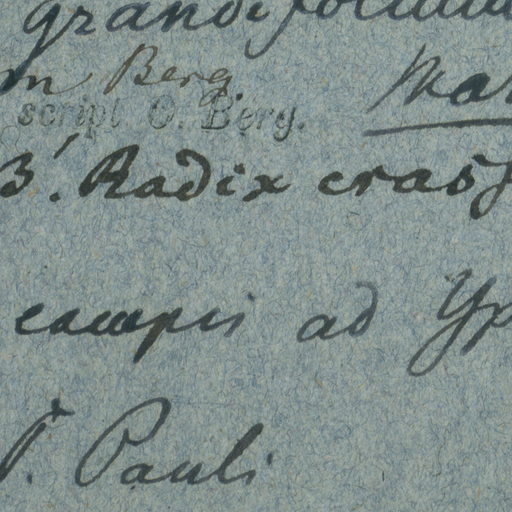 grandifolium
m Berg. Mar
script O. Berg.
3'. Radix crass
campis ad Yp
P. Pauli